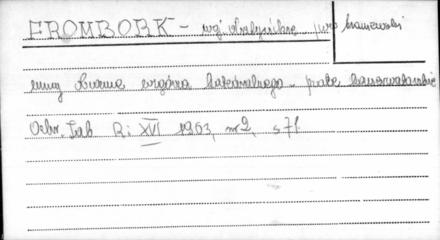 FROMBORK - woj. Olsztyńskie, pow. braniewski
katedralnego - prace konserwatorskie
Ochr. Zab R: XVI 1963, nr 2, s 71